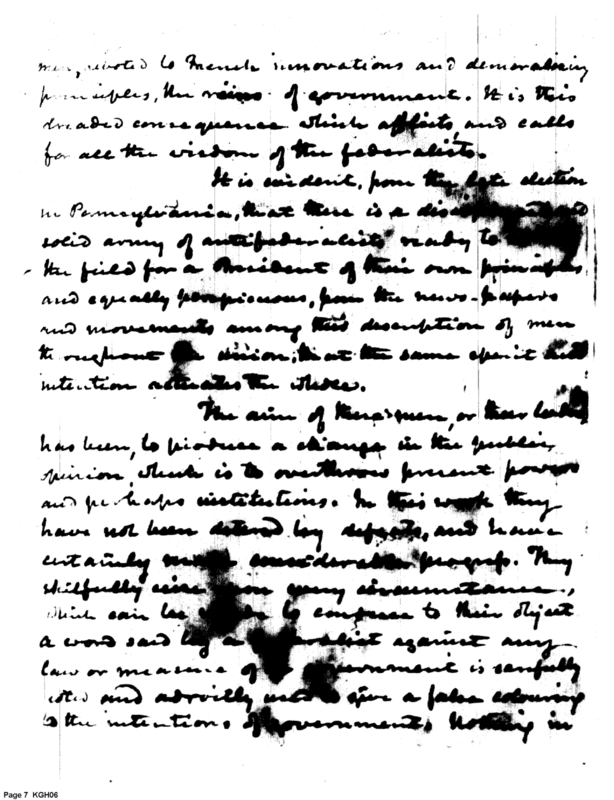 men, devoted to French innovations and demoralizing
principles, the reins of government. It is this
dreaded consequence which afflicts, and calls
for all the wisdom of the federalists.
It is evident, from the late election
in Pennsylvania, that there is a
solid army of antifederalists ready to
the field for a President of their own principles
and equally perspicuous, from the news-papers
and movements among this description of men
throughout the union; that the same spirit and
intention actuates the whole.
The aim of these men, or their leaders
has been, to produce a change in the public
opinion, which is to overthrow present powers
and perhaps institutions. In this work they
have not been deterred by defeats, and have
certainly made considerable progress. They
skilfully seize upon every circumstance,
which can be to conduce to their object
a word said by a against any
law or measure of government is carefully
noted and adroitly used to give a false colouring
to the intentions of government. Nothing in
Page 7 KGH06